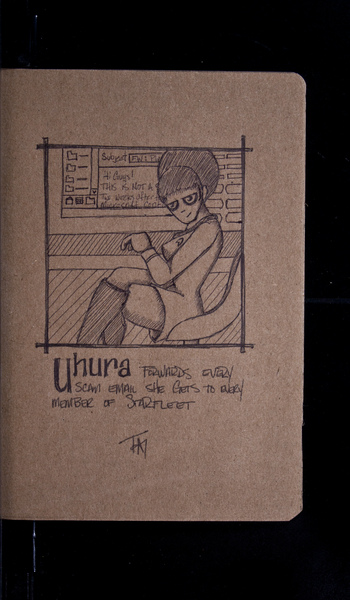 Subject: FWD:
Hi Guys!
THIS IS NOT A
Uhura FORWARDS EVERY
SCAM EMAIL SHE GETS TO EVERY
MEMBER OF STARFLEET